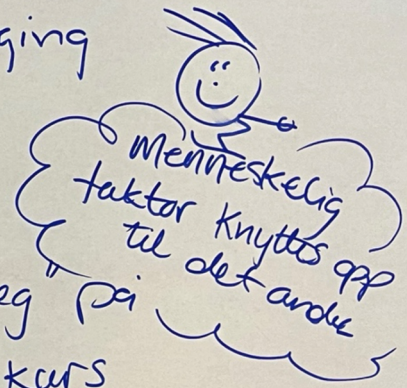 ging
menneskelig
faktor knyttes opp
til det andre
eg på
kurs